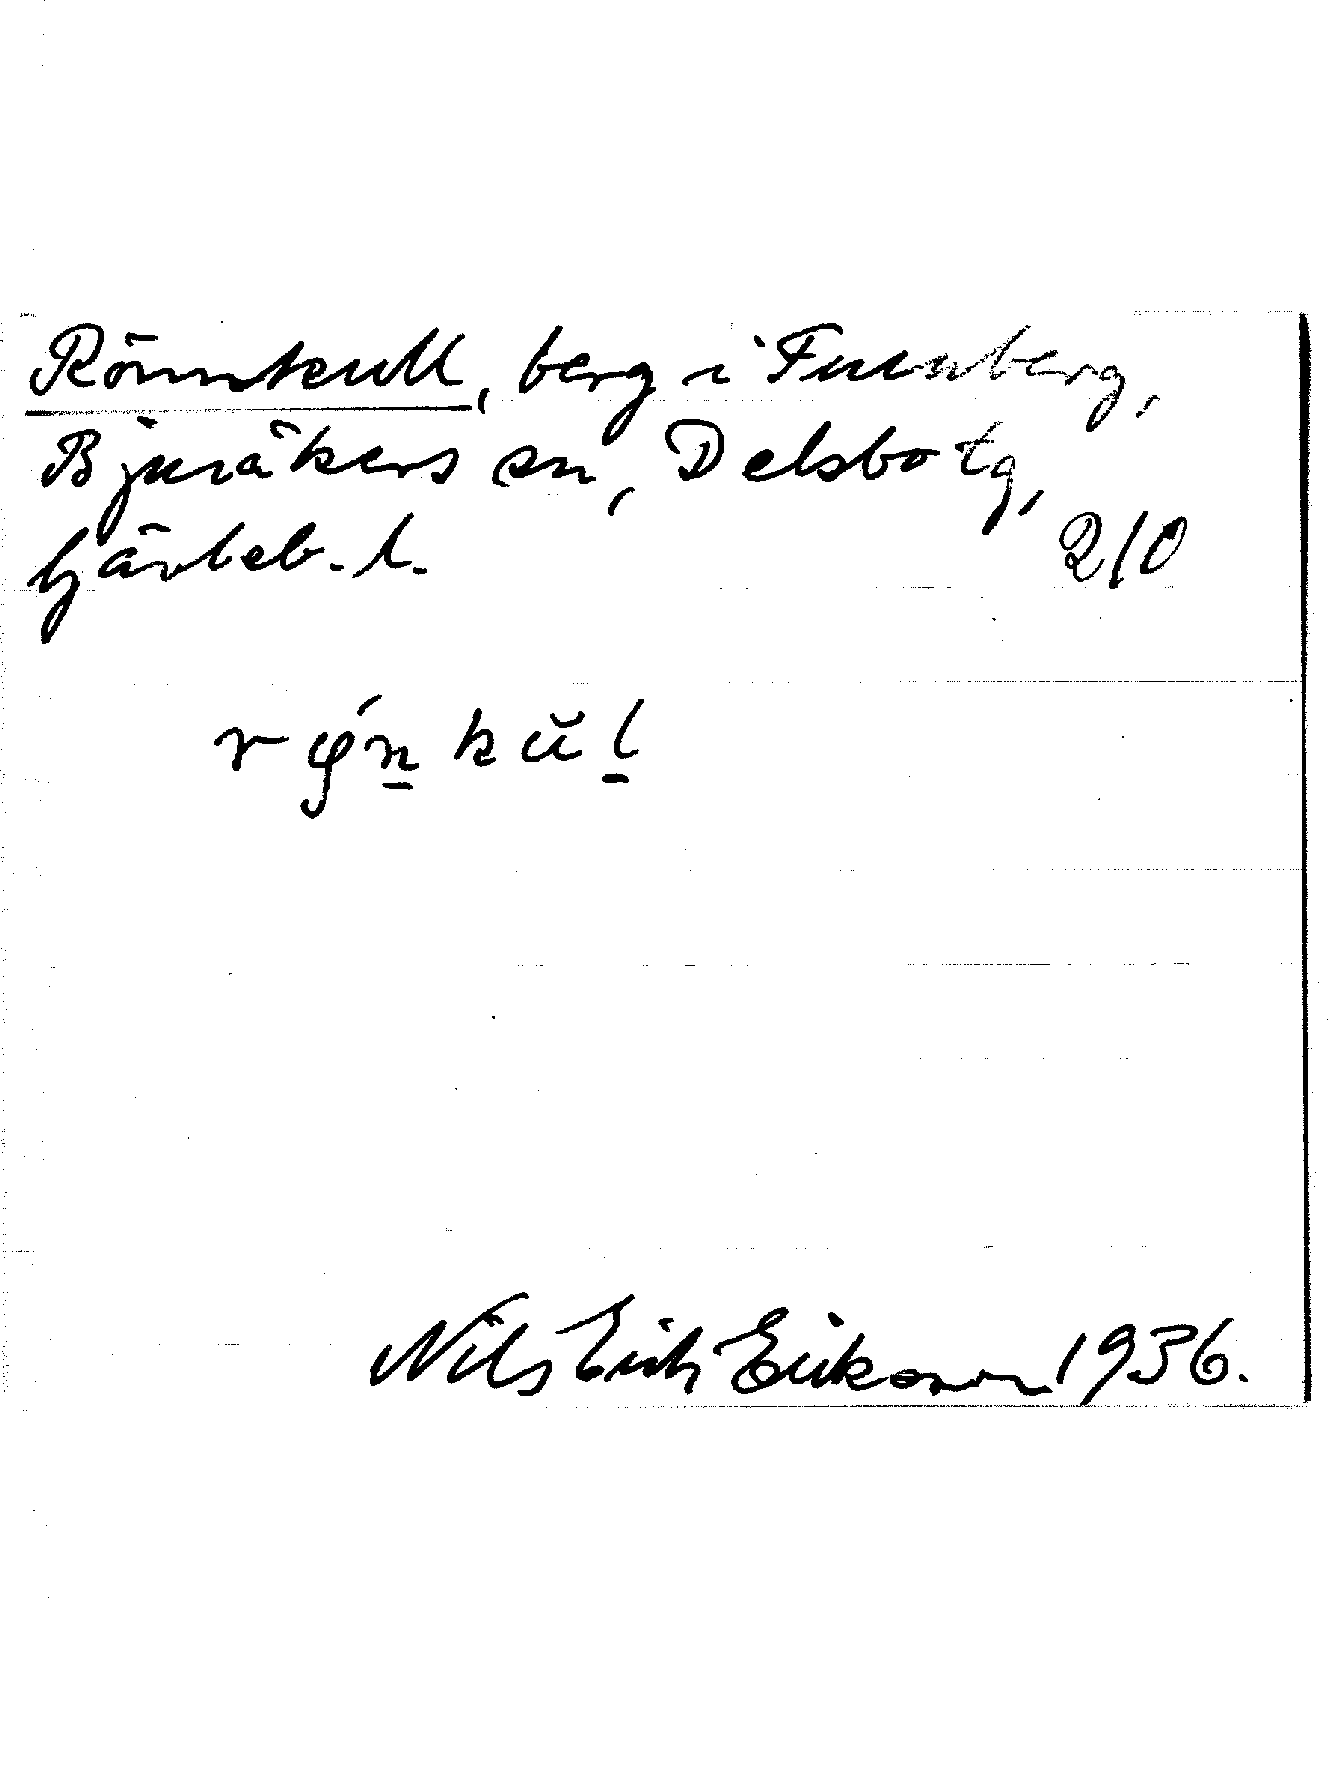 Rönnkull, berg i Furuberg,
Bjuråkers sn, Delsbo tg,
Gävleb. l.
210
rǿn̲ kŭl̲
Nils Erik Eriksson 1936.